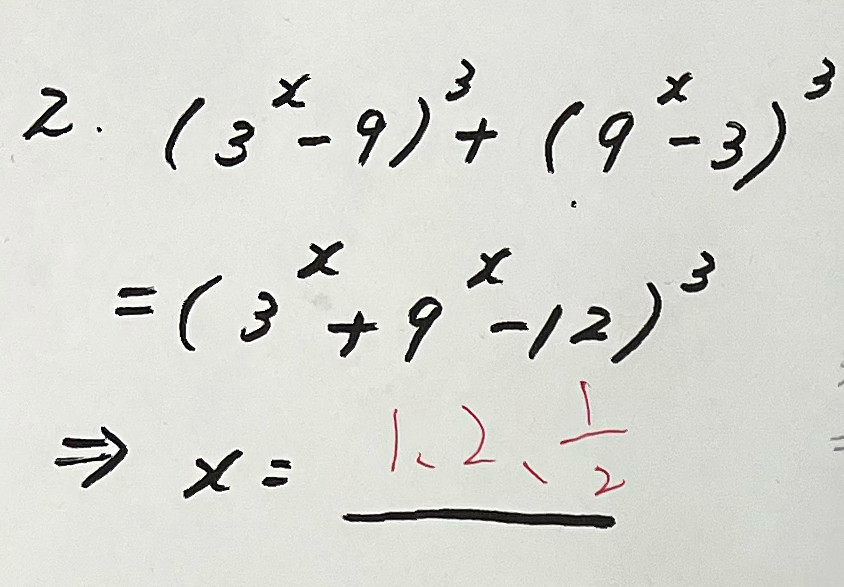 2. (3^x - 9)^3 + (9^x - 3)^3
= (3^x + 9^x - 12)^3
⇒ x = 1、2、1/2